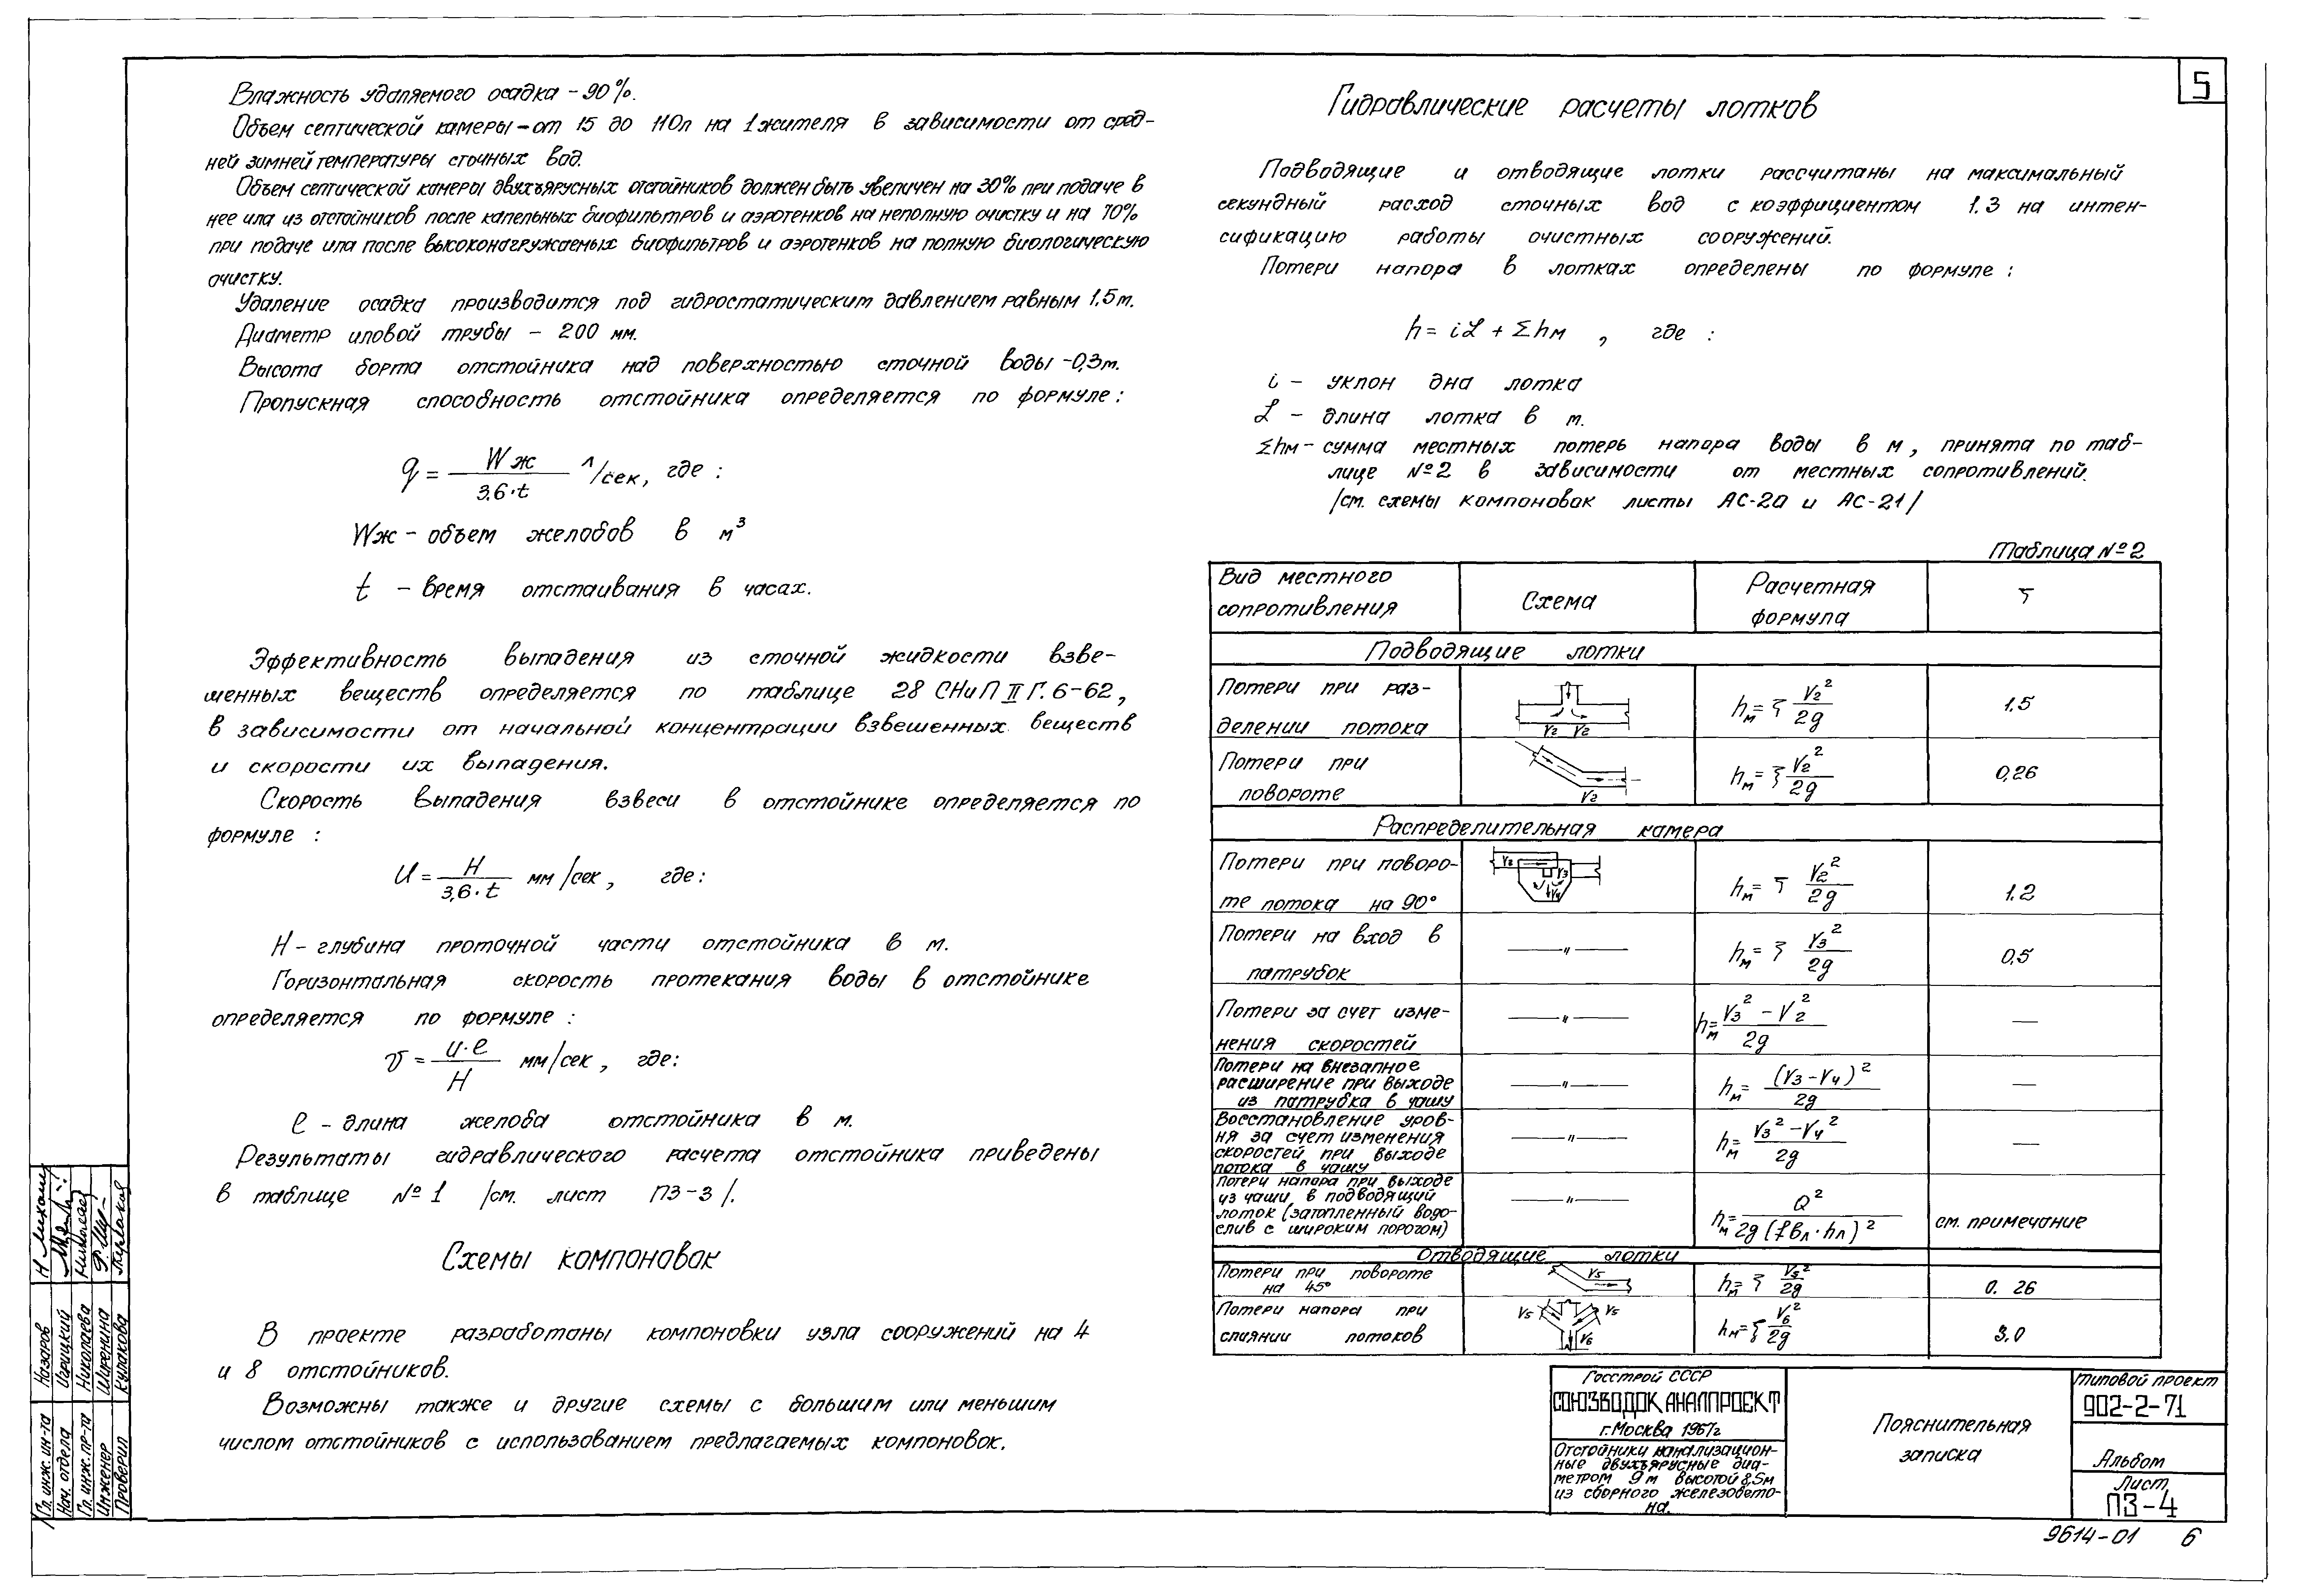 5
Влажность удаляемого осадка – 90%.
Объем септической камеры – от 15 до 110л на 1 жителя в зависимости от сред-
ней зимней температуры сточных вод.
Объем септической камеры двухъярусных отстойников должен быть увеличен на 30% при подаче в
нее ила из отстойников после капельных биофильтров и аэротенков на неполную очистку и на 70%
при подаче ила после высоконагружаемых биофильтров и аэротенков на полную биологическую
очистку.
Удаление осадка производится под гидростатическим давлением равным 1,5 м.
Диаметр иловой трубы – 200 мм.
Высота борта отстойника над поверхностью сточной воды – 0,3 м.
Пропускная способность отстойника определяется по формуле:
q = Wж / 3,6·t л/сек, где:
Wж – объем желобов в м³
t – время отстаивания в часах.
Эффективность выпадения из сточной жидкости взве-
шенных веществ определяется по таблице 28 СНиП II Г. 6-62,
в зависимости от начальной концентрации взвешенных веществ
и скорости их выпадения.
Скорость выпадения взвеси в отстойнике определяется по
формуле :
U = H / 3,6·t мм/сек, где:
H – глубина проточной части отстойника в м.
Горизонтальная скорость протекания воды в отстойнике
определяется по формуле :
v = u·ℓ / H мм/сек, где:
ℓ – длина желоба отстойника в м.
Результаты гидравлического расчета отстойника приведены
в таблице №1 /см. лист ПЗ-3/.
Схемы компоновок
В проекте разработаны компоновки узла сооружений на 4
и 8 отстойников.
Возможны также и другие схемы с большим или меньшим
числом отстойников с использованием предлагаемых компоновок.
Гидравлические расчеты лотков
Подводящие и отводящие лотки рассчитаны на максимальный
секундный расход сточных вод с коэффициентом 1.3 на интен-
сификацию работы очистных сооружений.
Потери напора в лотках определены по формуле :
h = iL + Σhм , где :
i – уклон дна лотка
L – длина лотка в м.
Σhм – сумма местных потерь напора воды в м, принята по таб-
лице №2 в зависимости от местных сопротивлений.
/см. схемы компоновок листы АС-20 и АС-21/
Таблица №2
Вид местного сопротивления Схема Расчетная формула ζ
Подводящие лотки
Потери при раз-
делении потока V2 V2 hм = ζ V2²/2g 1.5
Потери при
повороте V2 hм = ζ V2²/2g 0,26
Распределительная камера
Потери при поворо-
те потока на 90° V2 V3 V4 hм = ζ V2²/2g 1.2
Потери на вход в
патрубок —"— hм = ζ V3²/2g 0,5
Потери за счет изме-
нения скоростей —"— hм = V3² – V2² / 2g —
Потери на внезапное
расширение при выходе
из патрубка в чашу —"— hм = (V3–V4)² / 2g —
Восстановление уров-
ня за счет изменения
скоростей при выходе
потока в чашу —"— hм = V3² – V4² / 2g —
Потери напора при выходе
из чаши в подводящий
лоток (затопленный водо-
слив с широким порогом) —"— hм = Q² / 2g (f вл·hл)² см. примечание
Отводящие лотки
Потери при повороте
на 45° V5 hм = ζ V5²/2g 0.26
Потери напора при
слиянии потоков V5 V5 V6 hм = ζ V6²/2g 3,0
Госстрой СССР
СОЮЗВОДОКАНАЛПРОЕКТ
г. Москва 1967г
Отстойники канализацион-
ные двухъярусные диа-
метром 9 м высотой 8,5м
из сборного железобето-
на.
Пояснительная
записка
Типовой проект
902-2-71
Альбом
Лист
ПЗ-4
9614-01 6
Гл. инж. ин-та Назаров
Нач. отдела Царицкий
Гл. инж. пр-та Николаева
Инженер Ширенина
Проверил Кулакова